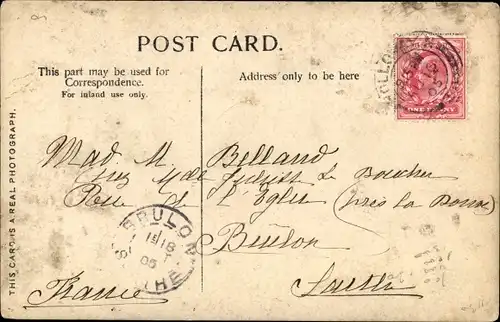 POST CARD.
This part may be used for
Correspondence.
For inland use only.
Address only to be here
THIS CARD IS A REAL PHOTOGRAPH.
ONE PENNY
Mad. M. Belland
chez Mde Le Boucher
Rue de l'Eglise (près la Poste)
Brulon
Sarthe
France
BRULON
18
05